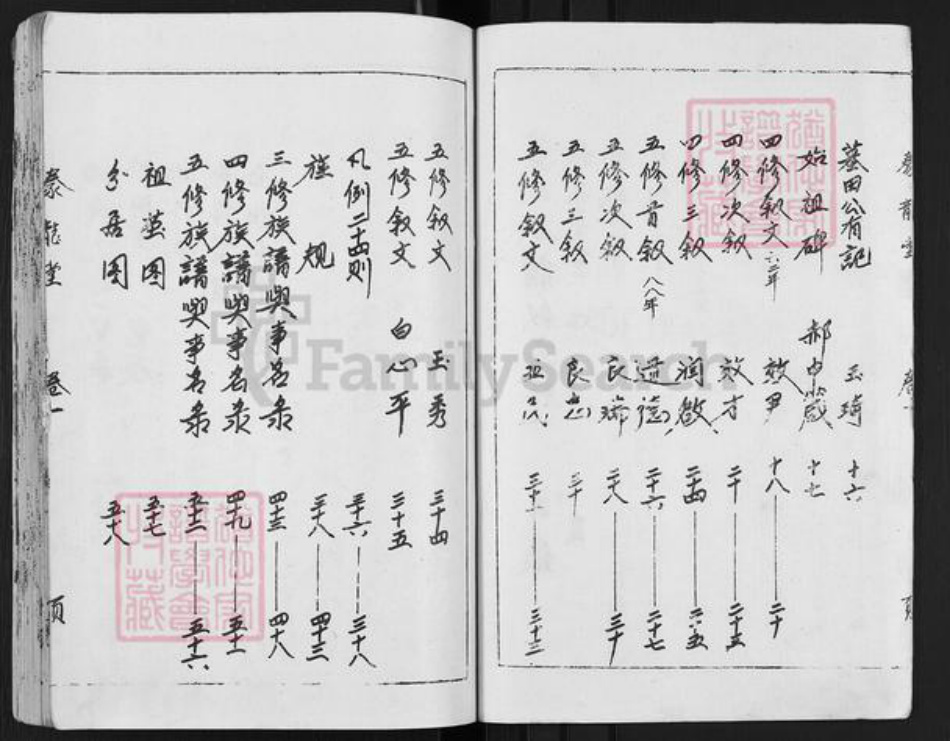 墓田公有記 玉琦 十六
始祖碑 郝中箴 十七
四修叙文 六二年 效尹 十八——二十
四修次叙 效才 二十——二十五
四修三叙 润啟 二十四——二十五
五修首叙 八八年 道德 二十六——二十七
五修次叙 良瑞 二十八——三十
五修三叙 良忠 三十
五修叙文 三十二——三十三
五修叙文 玉秀 三十四
五修叙文 白心平 三十五
凡例二十四则 三十六——三十八
族规 三十八——四十三
三修族譜與事名录 四十三——四十八
四修族譜與事名录 四十九——五十一
五修族譜與事名录 五十二——五十六
祖茔图 五十七
分居图 五十八
泰龍堂 卷一 页
FamilySearch